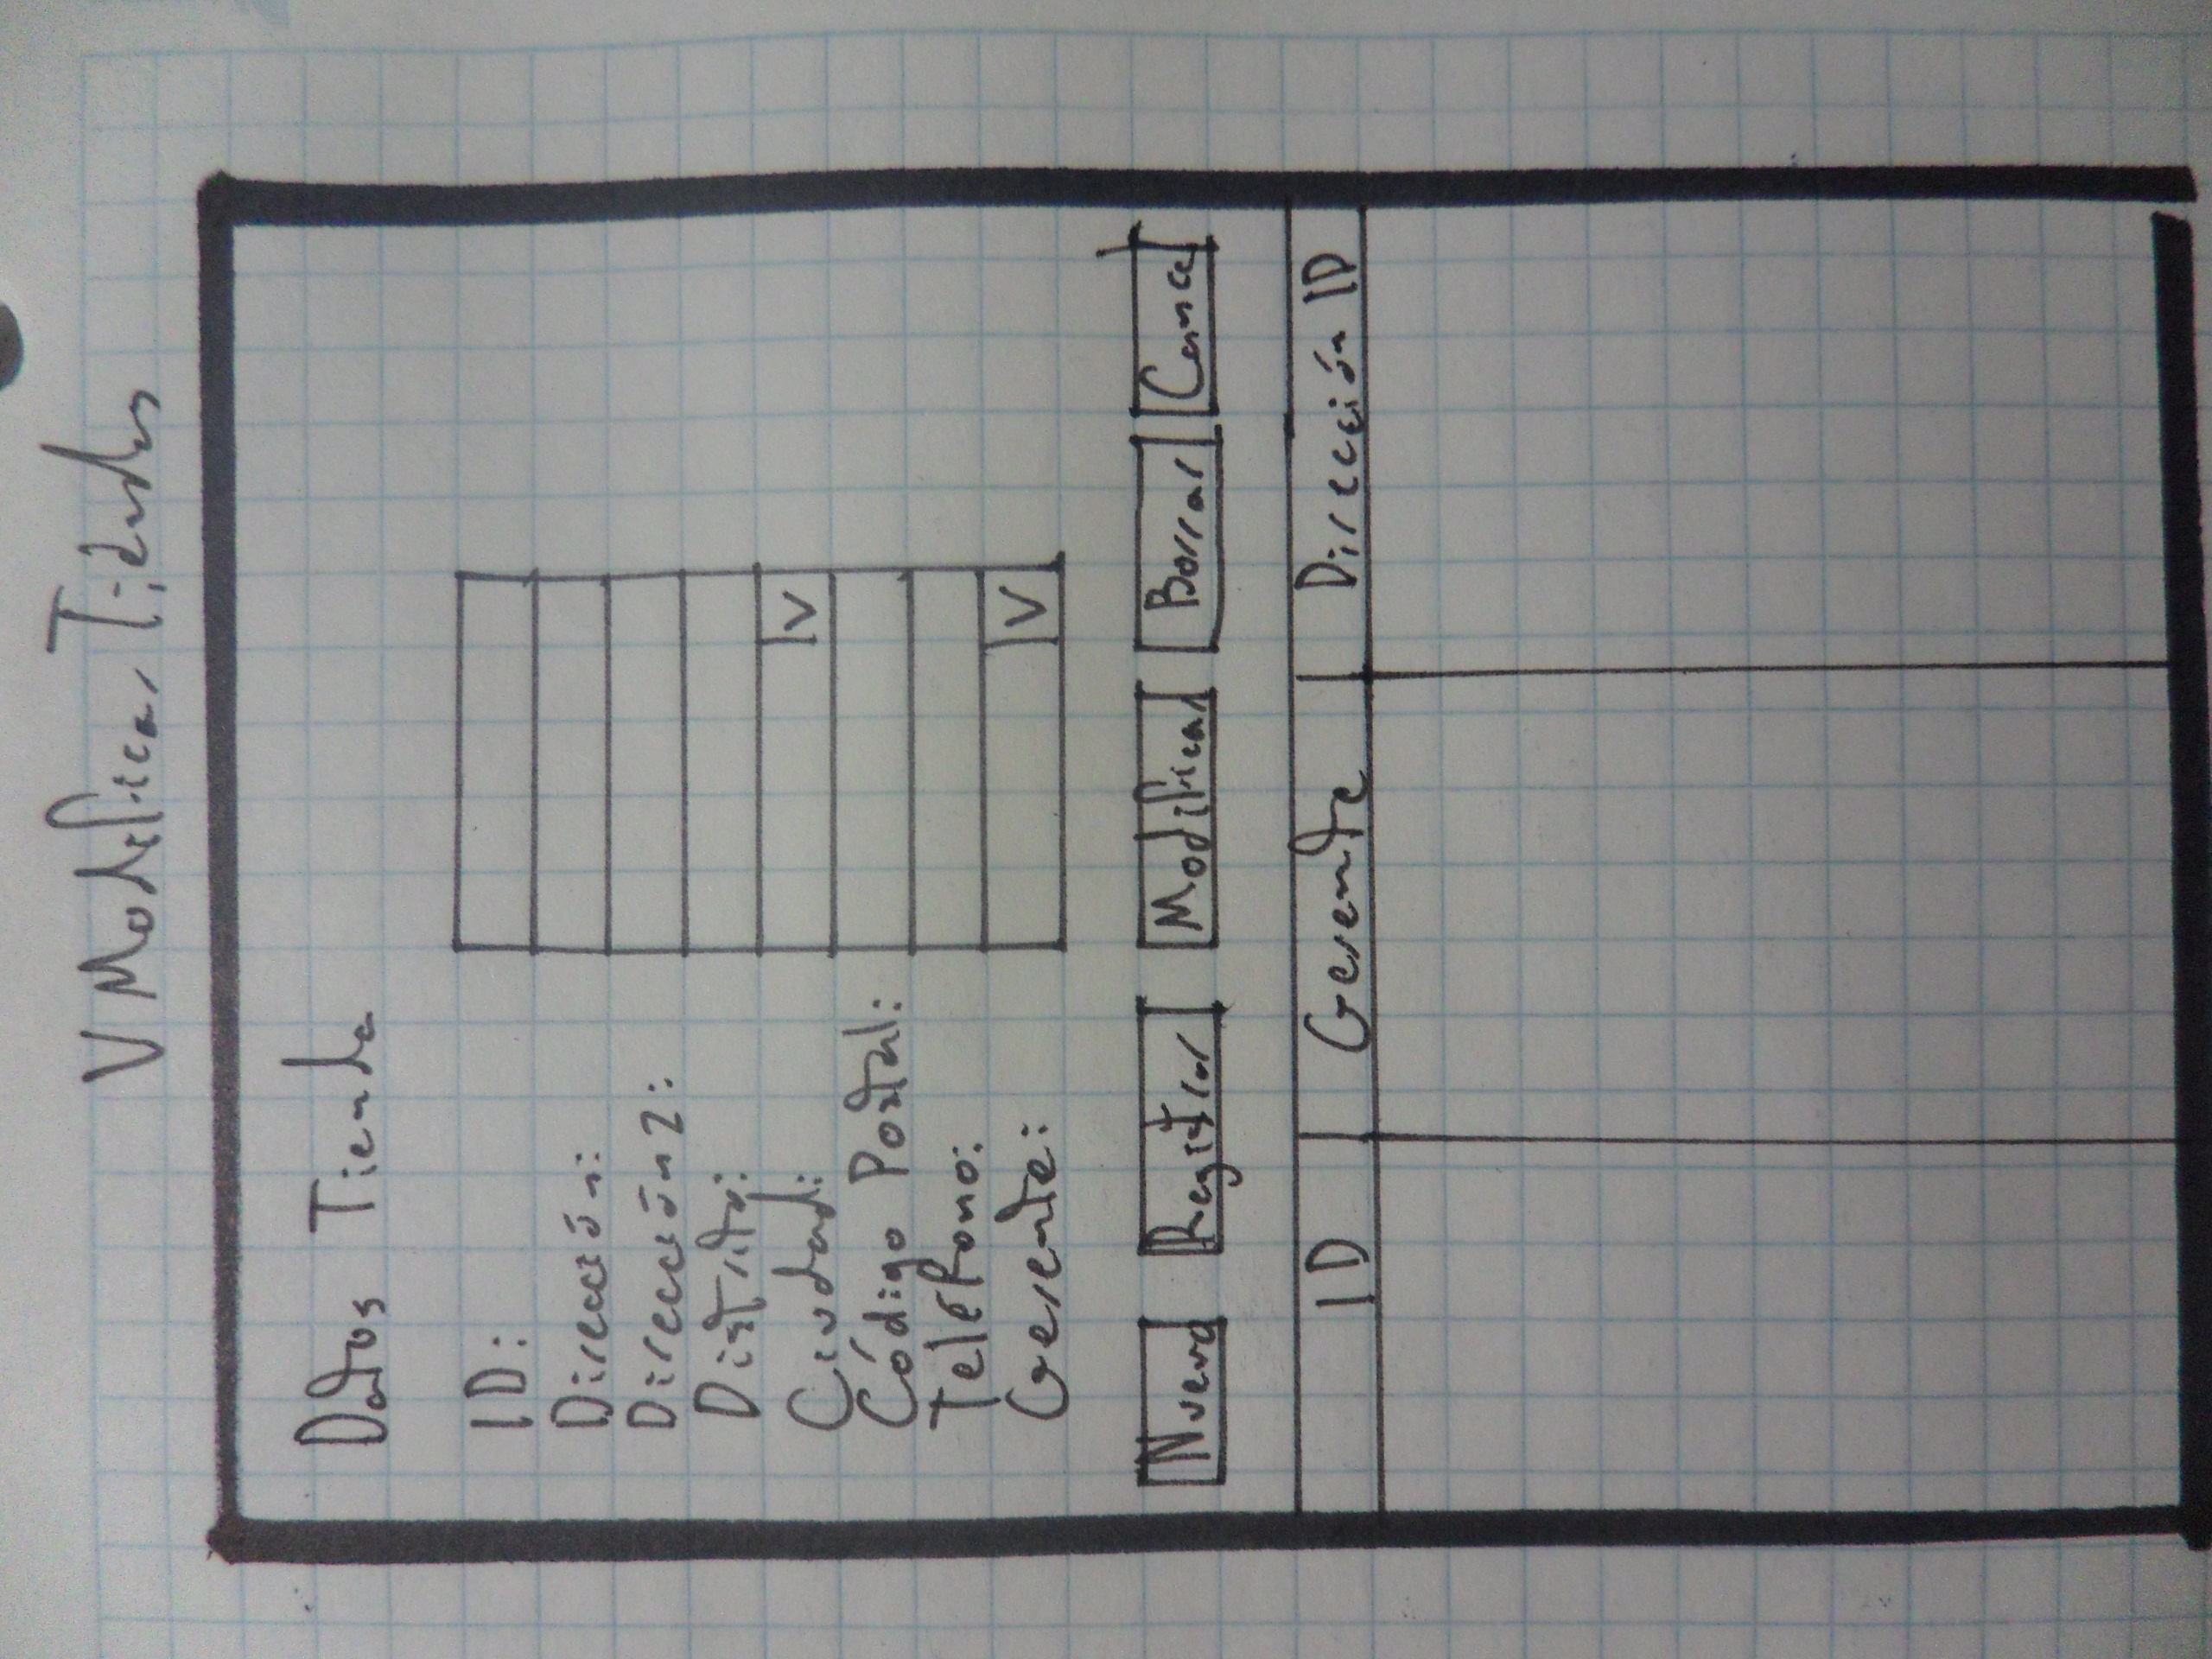 V Modificar Tiendas
Datos Tienda
ID:
Dirección:
Dirección2:
Distrito:
Ciudad:
Código Postal:
Teléfono:
Gerente:
V
V
Nuevo Registrar Modificar Borrar Cancel
ID Gerente Dirección ID